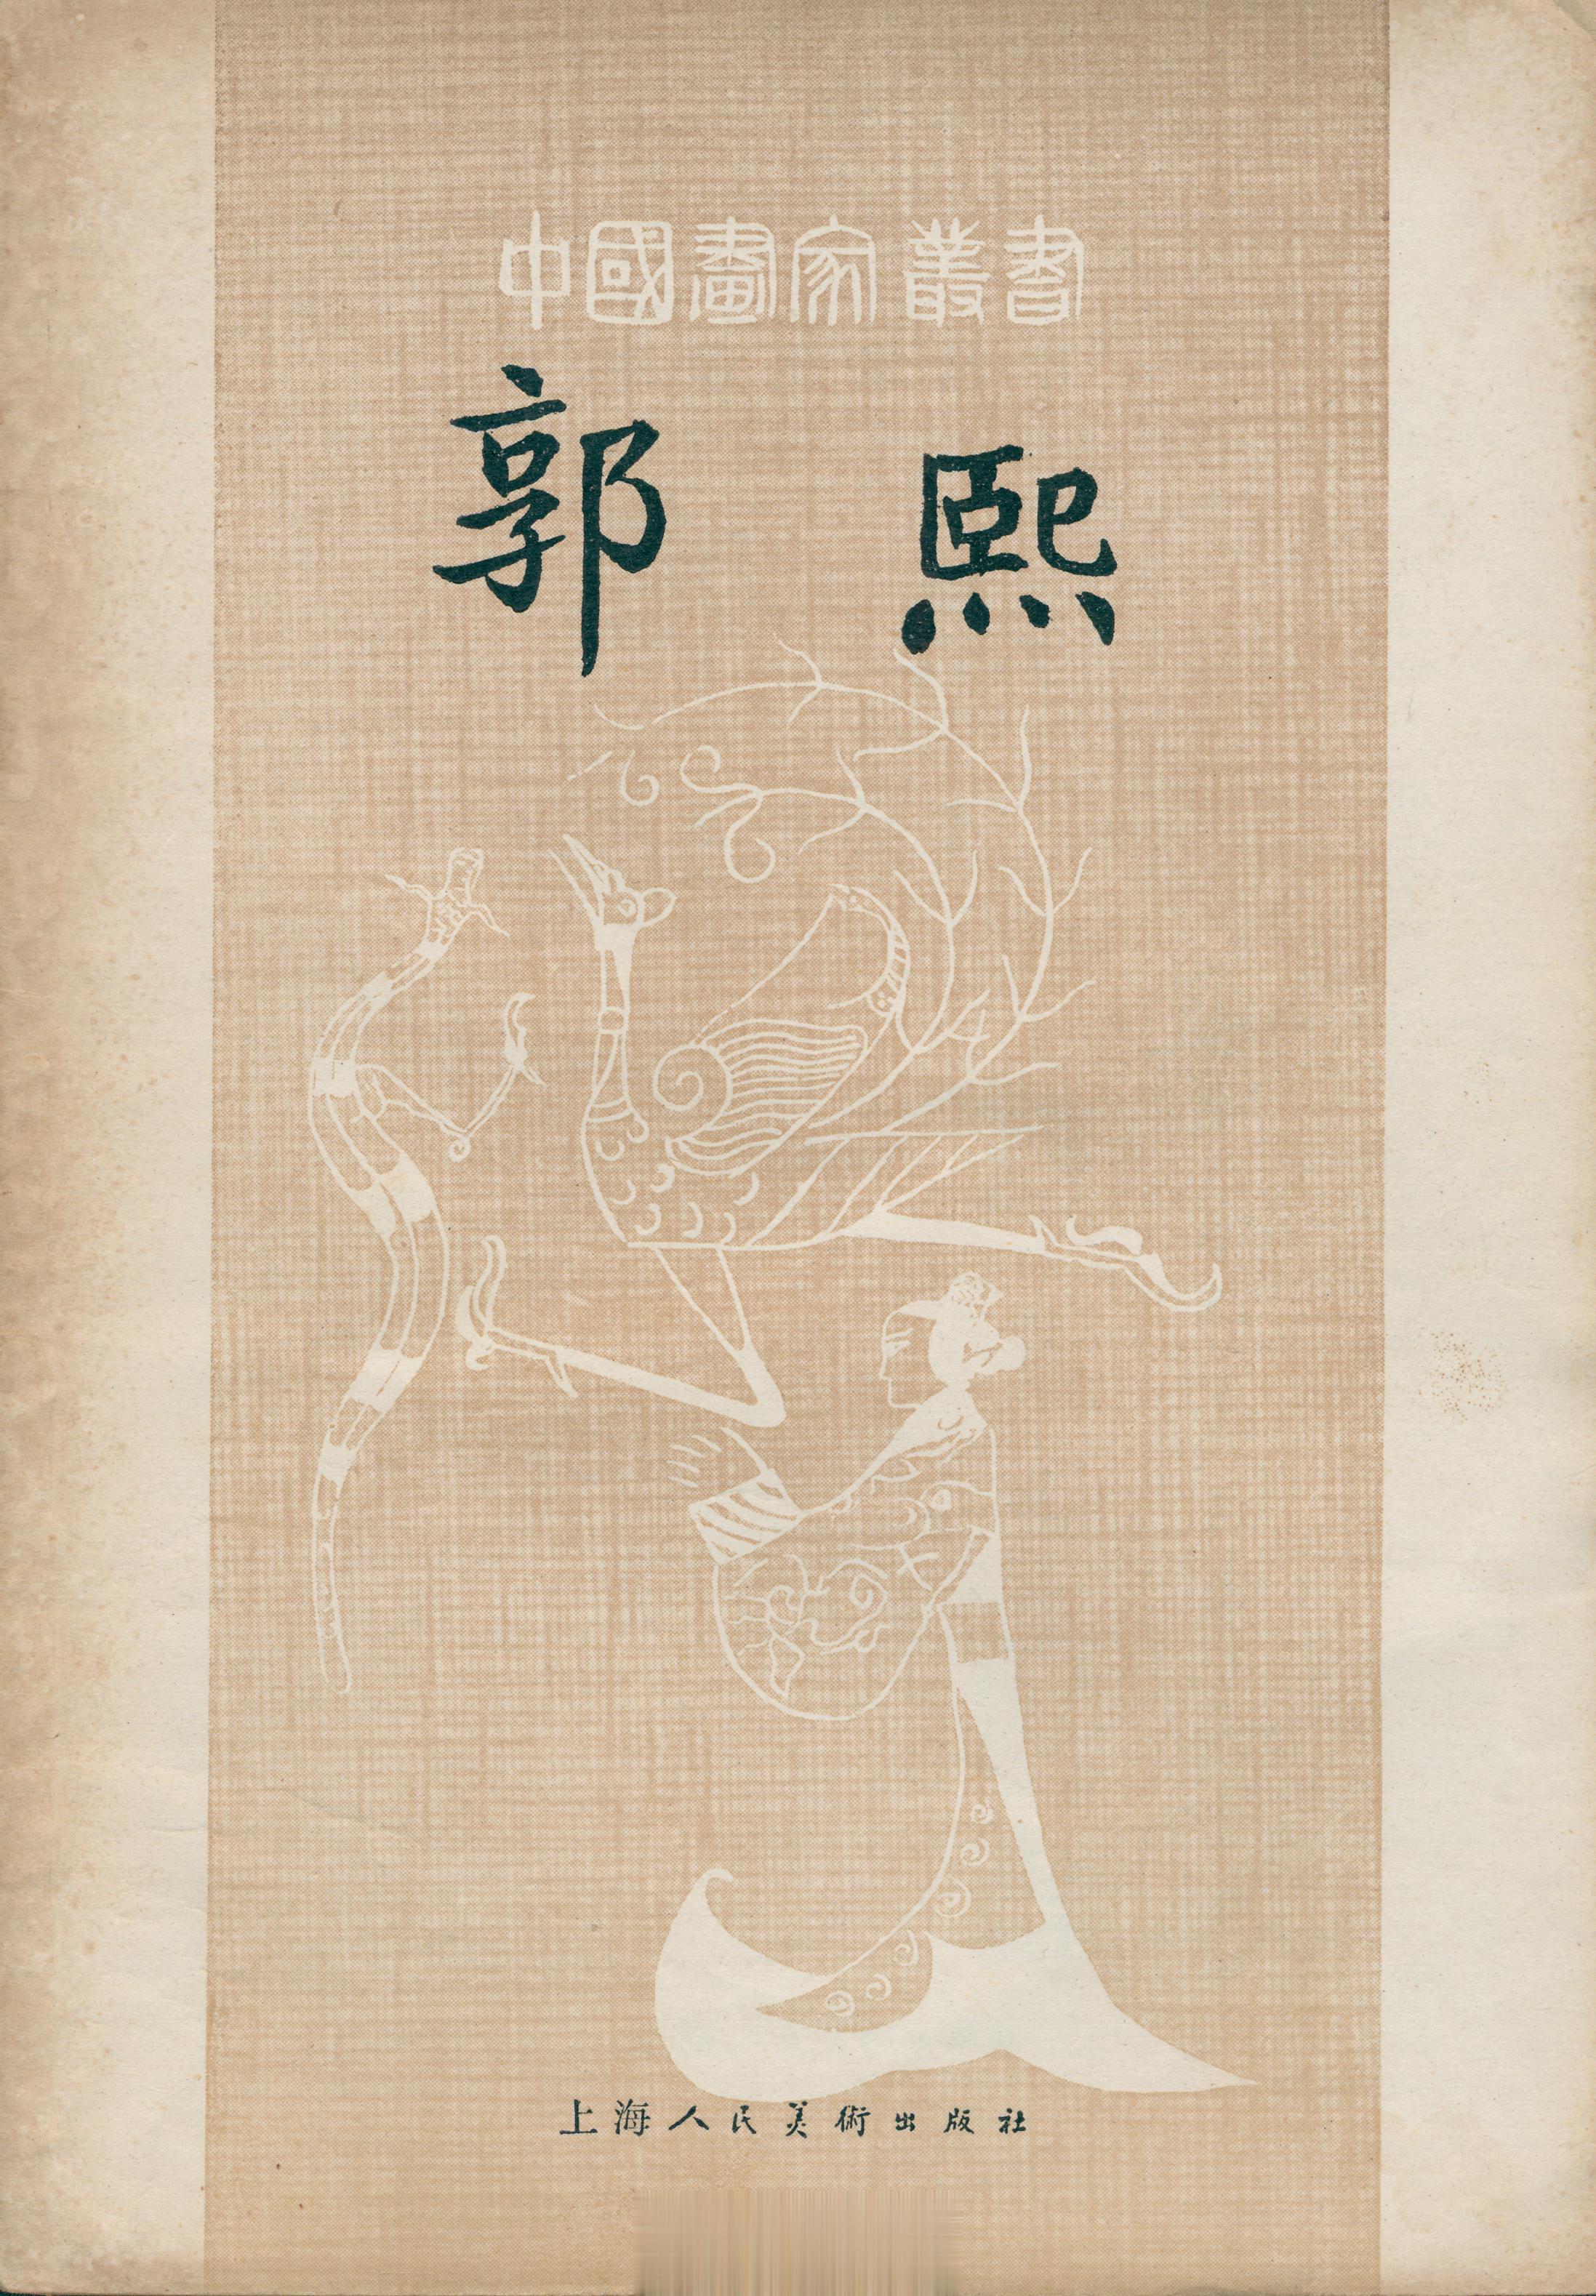 中國畫家叢書
郭熙
上海人民美術出版社